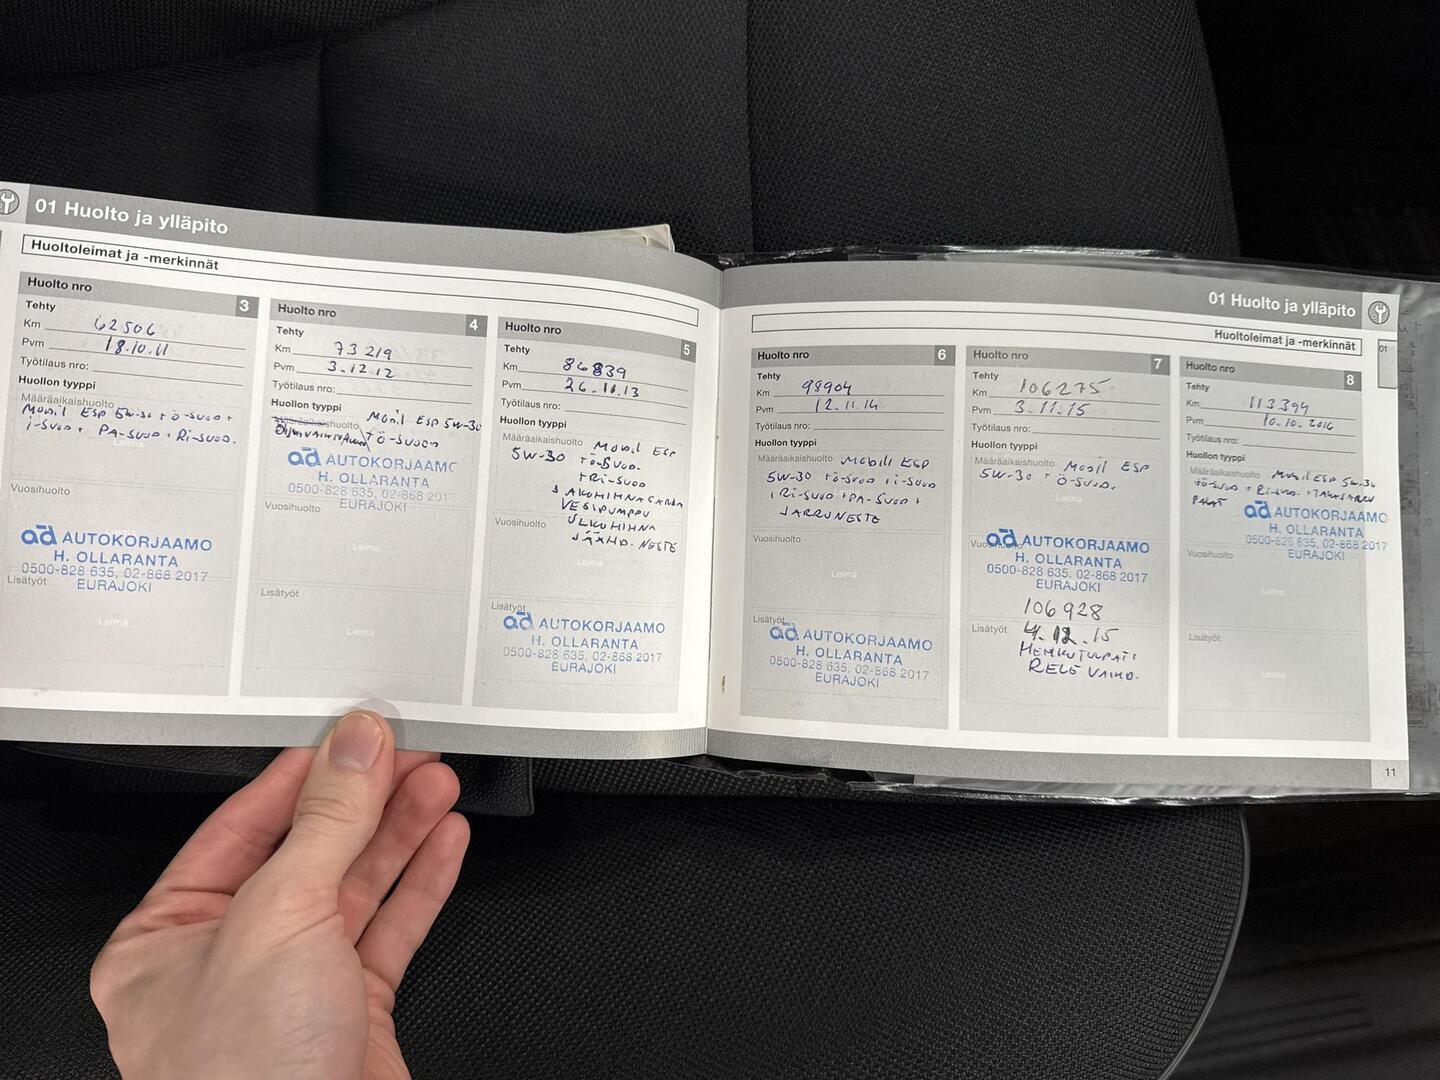 01 Huolto ja ylläpito
Huoltoleimat ja -merkinnät
Huolto nro 3
Tehty
Km 62506
Pvm 18.10.11
Työtilaus nro:
Huollon tyyppi
Määräaikaishuolto
Mobil ESP 5W-30 + Ö-SUOD +
i-SUOD + PA-SUOD + Ri-SUOD.
Leima
Vuosihuolto
Leima
ad AUTOKORJAAMO
H. OLLARANTA
0500-828 635, 02-868 2017
EURAJOKI
Lisätyöt
Leima
Huolto nro 4
Tehty
Km 73219
Pvm 3.12.12
Työtilaus nro:
Huollon tyyppi
Mobil ESP 5W-30
+ Ö-SUOD
ad AUTOKORJAAMO
H. OLLARANTA
0500-828 635, 02-868 2017
EURAJOKI
Vuosihuolto
Leima
Lisätyöt
Leima
Huolto nro 5
Tehty
Km 86839
Pvm 26.11.13
Työtilaus nro:
Huollon tyyppi
Määräaikaishuolto Mobil ESP
5W-30 + Ö-SUOD.
+ Ri-SUOD
JAKOHIHNASARJA
VESIPUMPPU
Vuosihuolto ULKOHIHNA
JÄÄHD. NESTE
Leima
Lisätyöt
ad AUTOKORJAAMO
H. OLLARANTA
0500-828 635, 02-868 2017
EURAJOKI
01 Huolto ja ylläpito
Huoltoleimat ja -merkinnät
01
Huolto nro 6
Tehty
Km 98904
Pvm 12.11.14
Työtilaus nro:
Huollon tyyppi
Määräaikaishuolto Mobil ESP
5W-30 + Ö-SUOD + i-SUOD
+ Ri-SUOD + PA-SUOD +
JARRUNESTE
Vuosihuolto
Leima
Lisätyöt
ad AUTOKORJAAMO
H. OLLARANTA
0500-828 635, 02-868 2017
EURAJOKI
Huolto nro 7
Tehty
Km 106275
Pvm 3.11.15
Työtilaus nro:
Huollon tyyppi
Määräaikaishuolto Mobil ESP
5W-30 + Ö-SUOD.
Leima
Vuosihuolto
ad AUTOKORJAAMO
H. OLLARANTA
0500-828 635, 02-868 2017
EURAJOKI
106928
Lisätyöt 4.12.15
HEHKUTULPATI
RELE VAIHD.
Huolto nro 8
Tehty
Km 113394
Pvm 10.10.2016
Työtilaus nro:
Huollon tyyppi
Määräaikaishuolto Mobil ESP 5W-30
+ Ö-SUOD + Ri-SUOD. + TAKAJARRU
PALAT
ad AUTOKORJAAMO
H. OLLARANTA
0500-828 635, 02-868 2017
EURAJOKI
Vuosihuolto
Leima
Lisätyöt
Leima
11